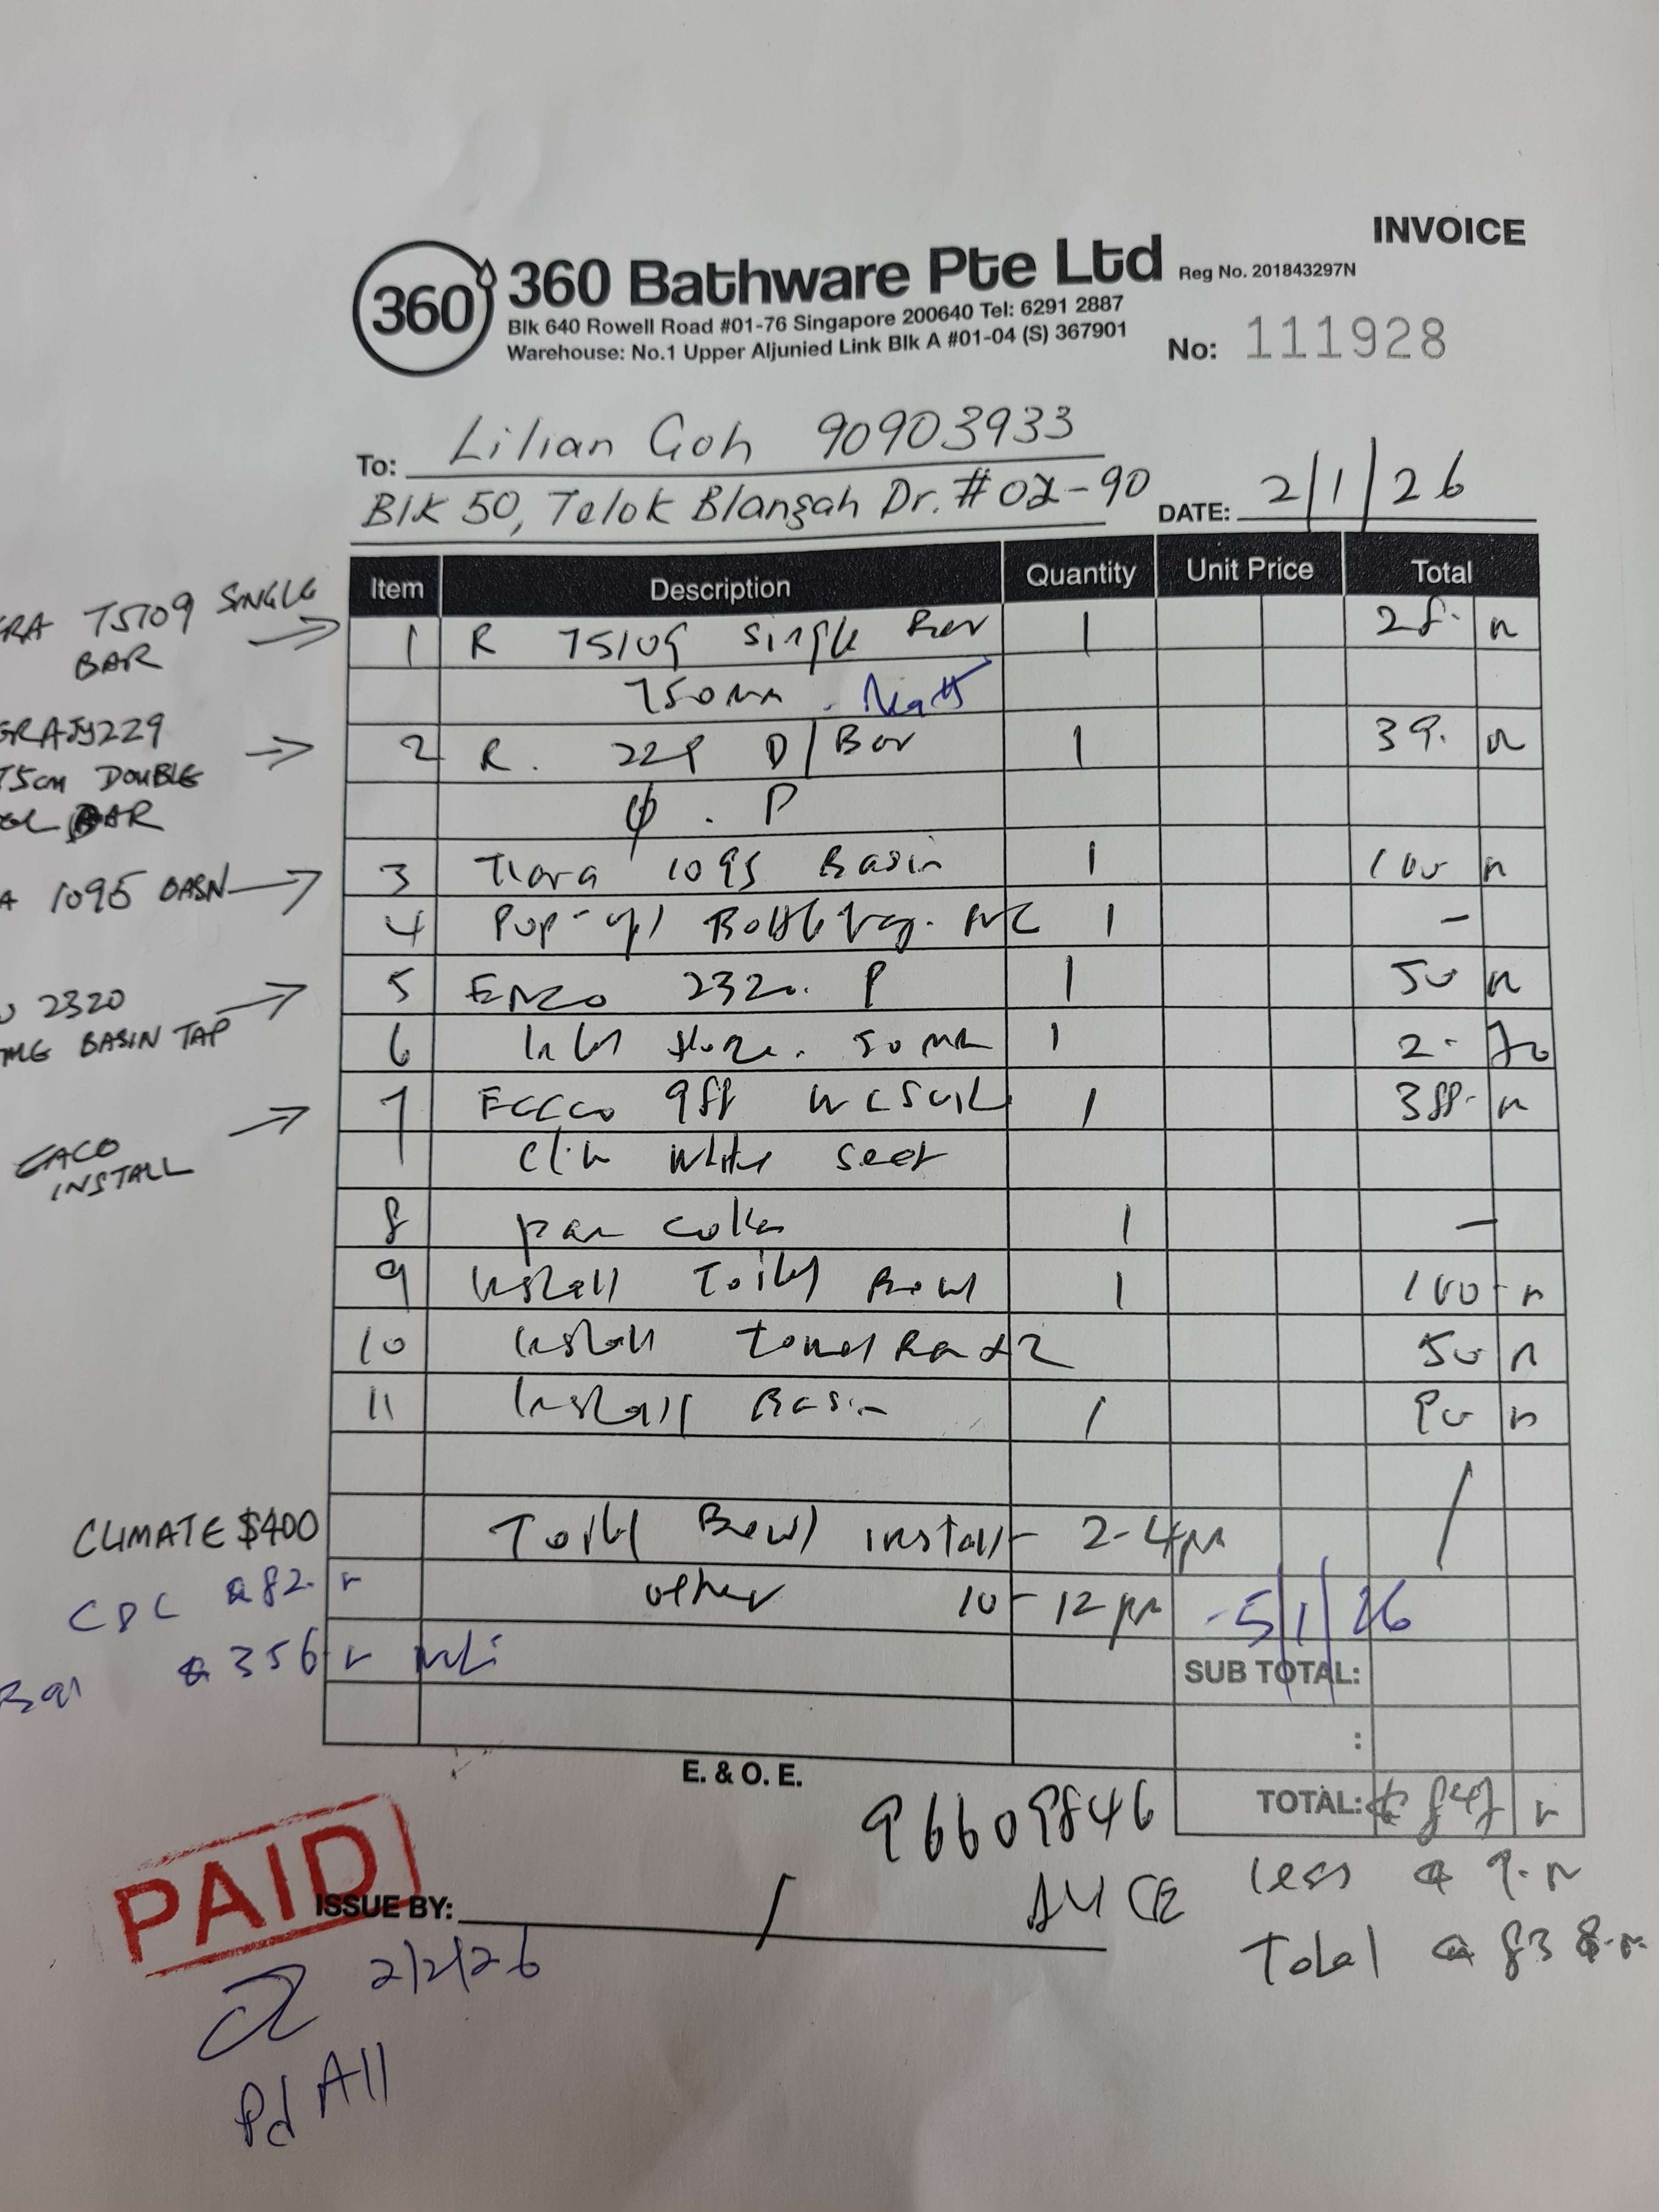 INVOICE
360
360 Bathware Pte Ltd Reg No. 201843297N
Blk 640 Rowell Road #01-76 Singapore 200640 Tel: 6291 2887
Warehouse: No.1 Upper Aljunied Link Blk A #01-04 (S) 367901
No: 111928
To: Lilian Goh 90903933
Blk 50, Telok Blangah Dr. #02-90
DATE: 2/1/26
Item Description Quantity Unit Price Total
RA 75109 SINGLE
BAR
1 R 75109 Single Bar 1 28.
750mm. Matt
GRAJY229
75cm DOUBLE
BAR
2 R. 229 D/Bar 1 39.
P
1095 BASN
3 Tiara 1095 Basin 1 100
4 Pop-up/ Bottle 1 -
2320
BASIN TAP
5 Enzo 2320. P 1 50
6 Inlet Hose. 50 1 2. 70
CACO
INSTALL
7 988 1 388.
white seat
8 pan collar 1 -
9 Install Toilet Bowl 1 100
10 Install Towel Bar x2 50
11 Install Basin 1 90
CLIMATE $400
Toilet Bowl install - 2-4pm
CDC 82.
other 10-12pm - 5/1/26
Bal 356
SUB TOTAL:
:
E. & O. E.
TOTAL: $ 847
96609846
less 9.
Total 838.
PAID
ISSUE BY:
2/2/26
Pd All